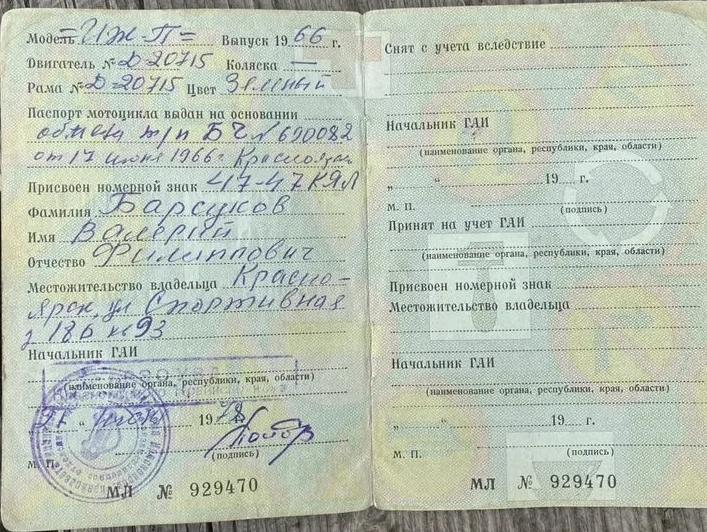 Модель =Иж-П= Выпуск 1966 г.
Двигатель № Д-20715 Коляска —
Рама № Д-20715 Цвет Зеленый
Паспорт мотоцикла выдан на основании
обмена т/п БЧ № 690082
от 17 июня 1966 г. Красноярск
Присвоен номерной знак 47-47 КЯЛ
Фамилия Барсуков
Имя Валерий
Отчество Филиппович
Местожительство владельца Красно-
ярск, ул Спортивная
186 93
Начальник ГАИ
(наименование органа, республики, края, области)
" 19 г.
М. П. (подпись)
МЛ № 929470
Снят с учета вследствие
Начальник ГАИ
(наименование органа, республики, края, области)
„ “ 19 г.
М. П. (подпись)
Принят на учет ГАИ
(наименование органа, республики, края, области)
Присвоен номерной знак
Местожительство владельца
Начальник ГАИ
(наименование органа, республики, края, области)
„ “ 19 г.
М. П. (подпись)
МЛ № 929470